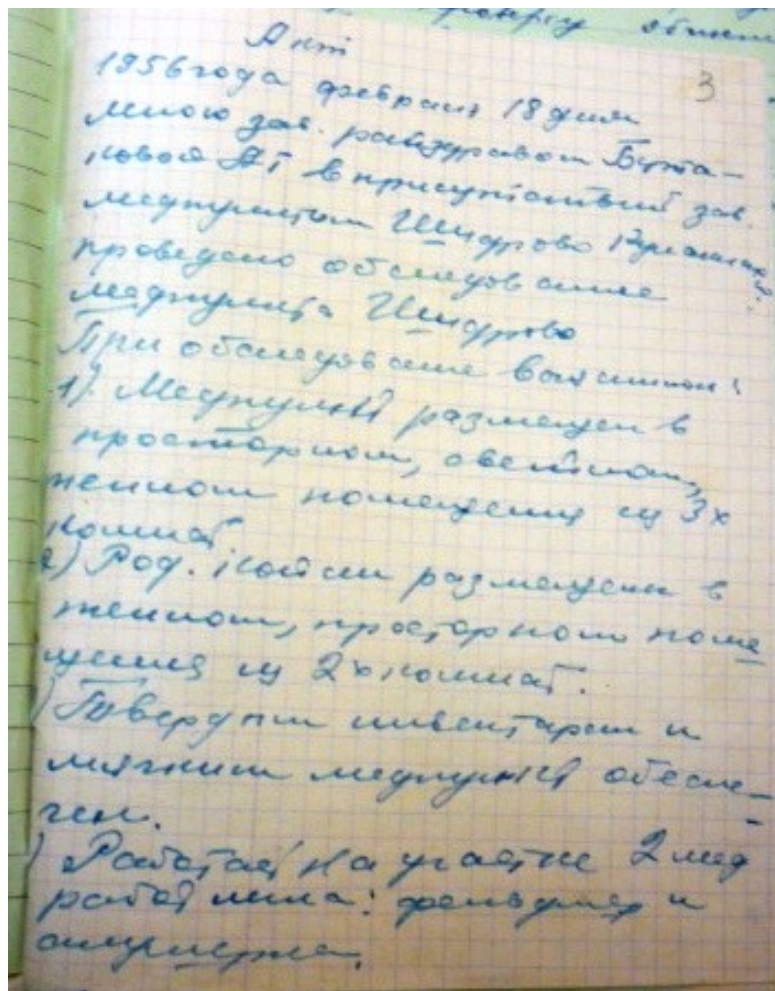 проверку
Акт
3
1956 года февраля 18 дня
мною зав. райздравом Бута-
ковой АГ в присутствий зав.
медпунктом Шидрово
проведено обследование
медпункта Шидрово
При обследование выяснил:
1). Медпункт размещен в
просторном, светлом,
теплом помещения из 3х
комнат
2) Род. койки размещены в
теплом, просторном поме
щения из 2х комнат.
) Твердым инвентарем и
мягким медпункт обеспе-
чен.
) Работает на участке 2 мед
работника: фельдшер и
акушерка.